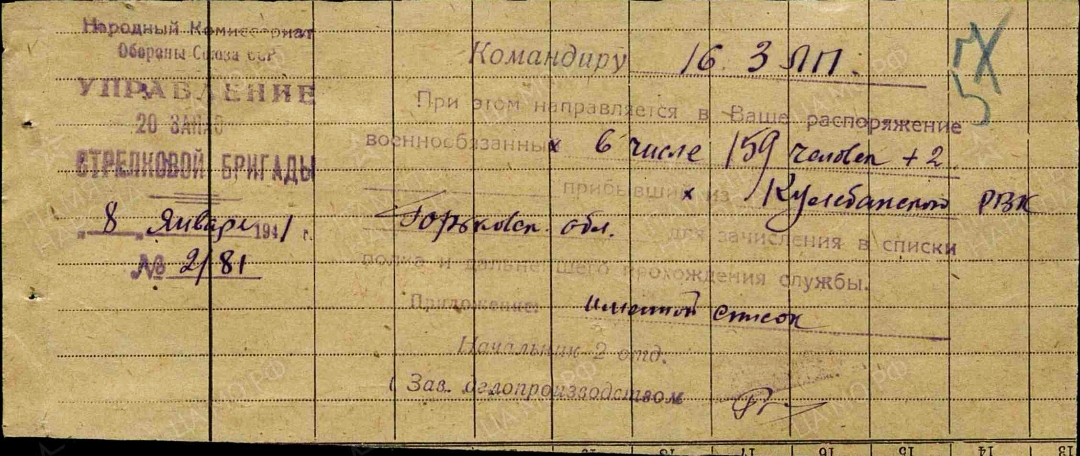 Народный Комиссариат
Обороны Союза ССР
УПРАВЛЕНИЕ
20 ЗАПАС
СТРЕЛКОВОЙ БРИГАДЫ
„ 8 „ Января 1941 г.
№ 2/81
Командиру 16 З ЛП.
При этом направляется в Ваше распоряжение
военнообязанных в числе 159 человек + 2
прибывших из Кулебакской РВК
Горьковск. обл. для зачисления в списки
полка и дальнейшего прохождения службы.
Приложение: именной список
Начальник 2 отд.
Зав. делопроизводством
13 14 15 16 17